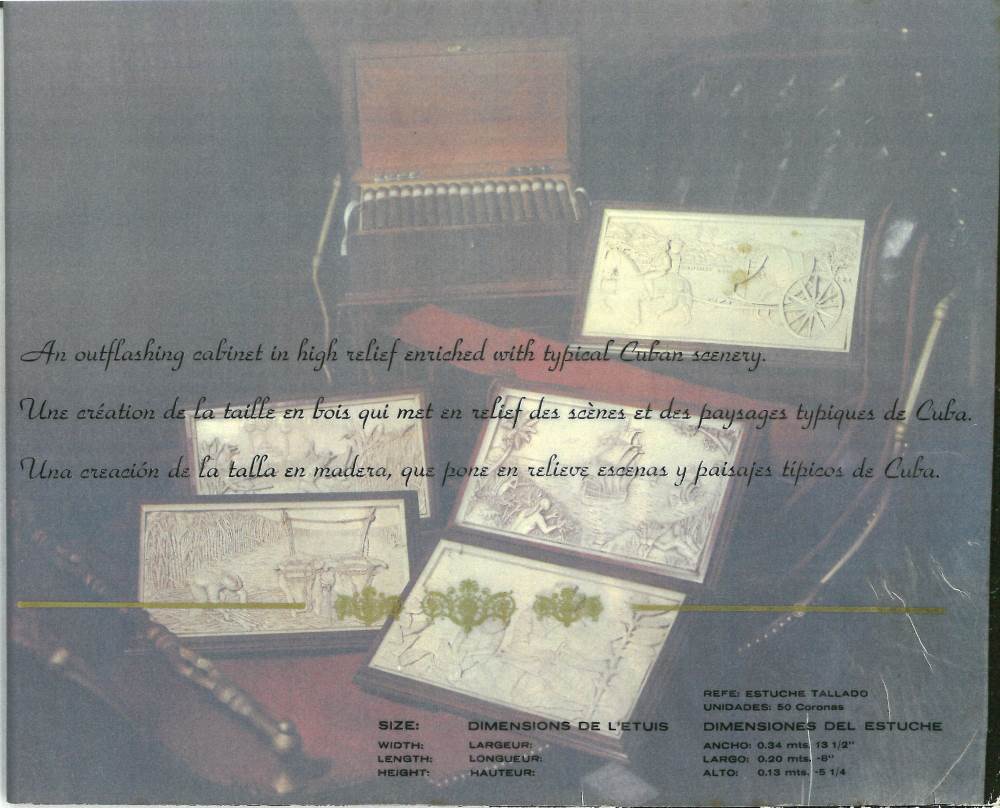 An outflashing cabinet in high relief enriched with typical Cuban scenery.
Une création de la taille en bois qui met en relief des scènes et des paysages typiques de Cuba.
Una creación de la talla en madera, que pone en relieve escenas y paisajes típicos de Cuba.
REFE: ESTUCHE TALLADO
UNIDADES: 50 Coronas
SIZE: DIMENSIONS DE L'ETUIS DIMENSIONES DEL ESTUCHE
WIDTH: LARGEUR: ANCHO: 0.34 mts. 13 1/2"
LENGTH: LONGUEUR: LARGO: 0.20 mts. -8"
HEIGHT: HAUTEUR: ALTO: 0.13 mts. -5 1/4